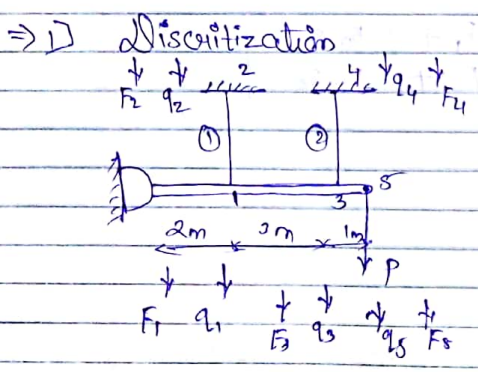 ⇒ 1) Discritization
F2 q2 2 4 q4 F4
① ②
1 3 5
2m 3m 1m
P
F1 q1 F3 q3 q5 F5